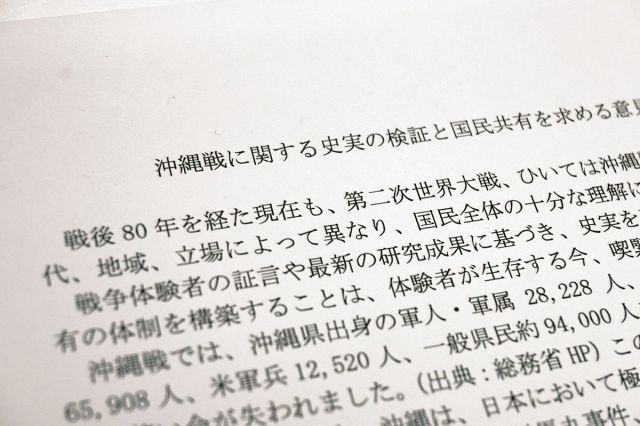 沖縄戦に関する史実の検証と国民共有を求める意見
戦後 80 年を経た現在も、第二次世界大戦、ひいては沖縄
代、地域、立場によって異なり、国民全体の十分な理解に
戦争体験者の証言や最新の研究成果に基づき、史実を
有の体制を構築することは、体験者が生存する今、喫緊
沖縄戦では、沖縄県出身の軍人・軍属 28,228 人、
65,908 人、米軍兵 12,520 人、一般県民約 94,000 人
命が失われました。(出典:総務省 HP) この
沖縄は、日本において極
事件、